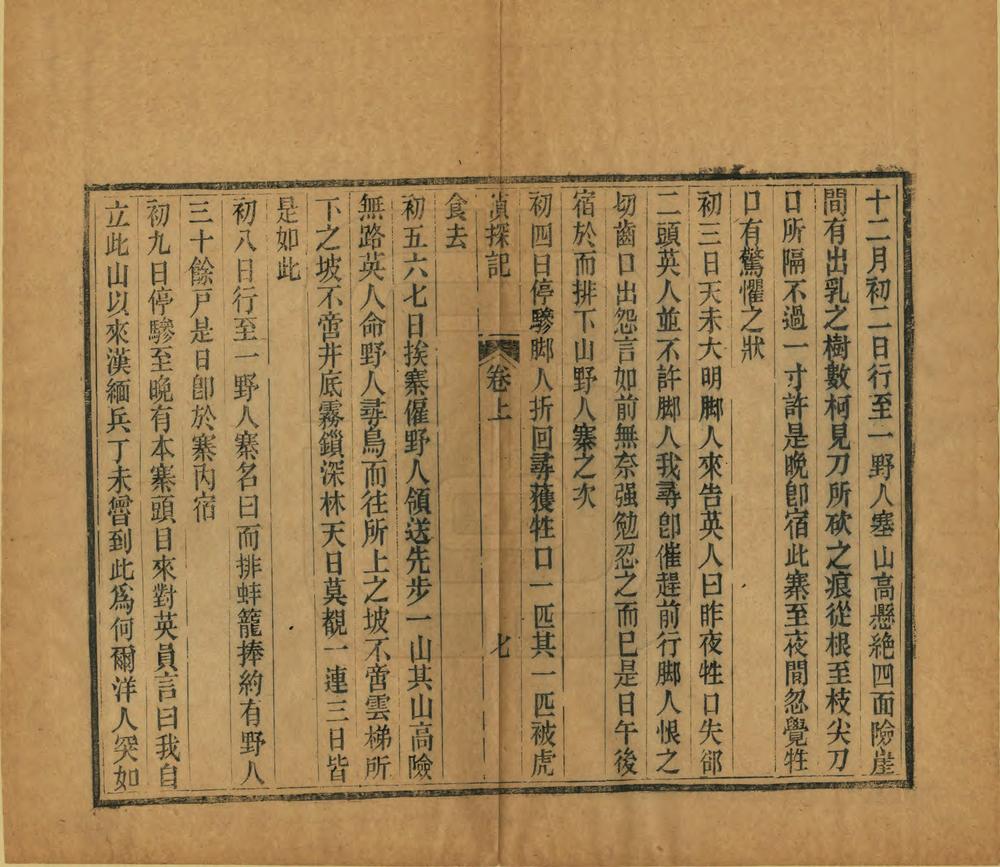 十二月初二日行至一野人塞山高懸絶四面險崖
間有出乳之樹數柯見刀所砍之痕從根至枝尖刀
口所隔不過一寸許是晚卽宿此寨至夜間忽覺牲
口有驚懼之狀
初三日天未大明脚人來告英人曰昨夜牲口失郤
二頭英人並不許脚人我尋卽催趕前行脚人恨之
切齒口出怨言如前無奈强勉忍之而已是日午後
宿於而排下山野人寨之次
初四日停驂脚人折回尋獲牲口一匹其一匹被虎
偵探記 卷上 七
食去
初五六七日挨寨僱野人領送先步一山其山高險
無路英人命野人尋鳥而往所上之坡不啻雲梯所
下之坡不啻井底霧鎖深林天日莫覩一連三日皆
是如此
初八日行至一野人寨名曰而排蚌籠捧約有野人
三十餘戸是日卽於寨内宿
初九日停驂至晚有本寨頭目來對英員言曰我自
立此山以來漢緬兵丁未曾到此爲何爾洋人突如